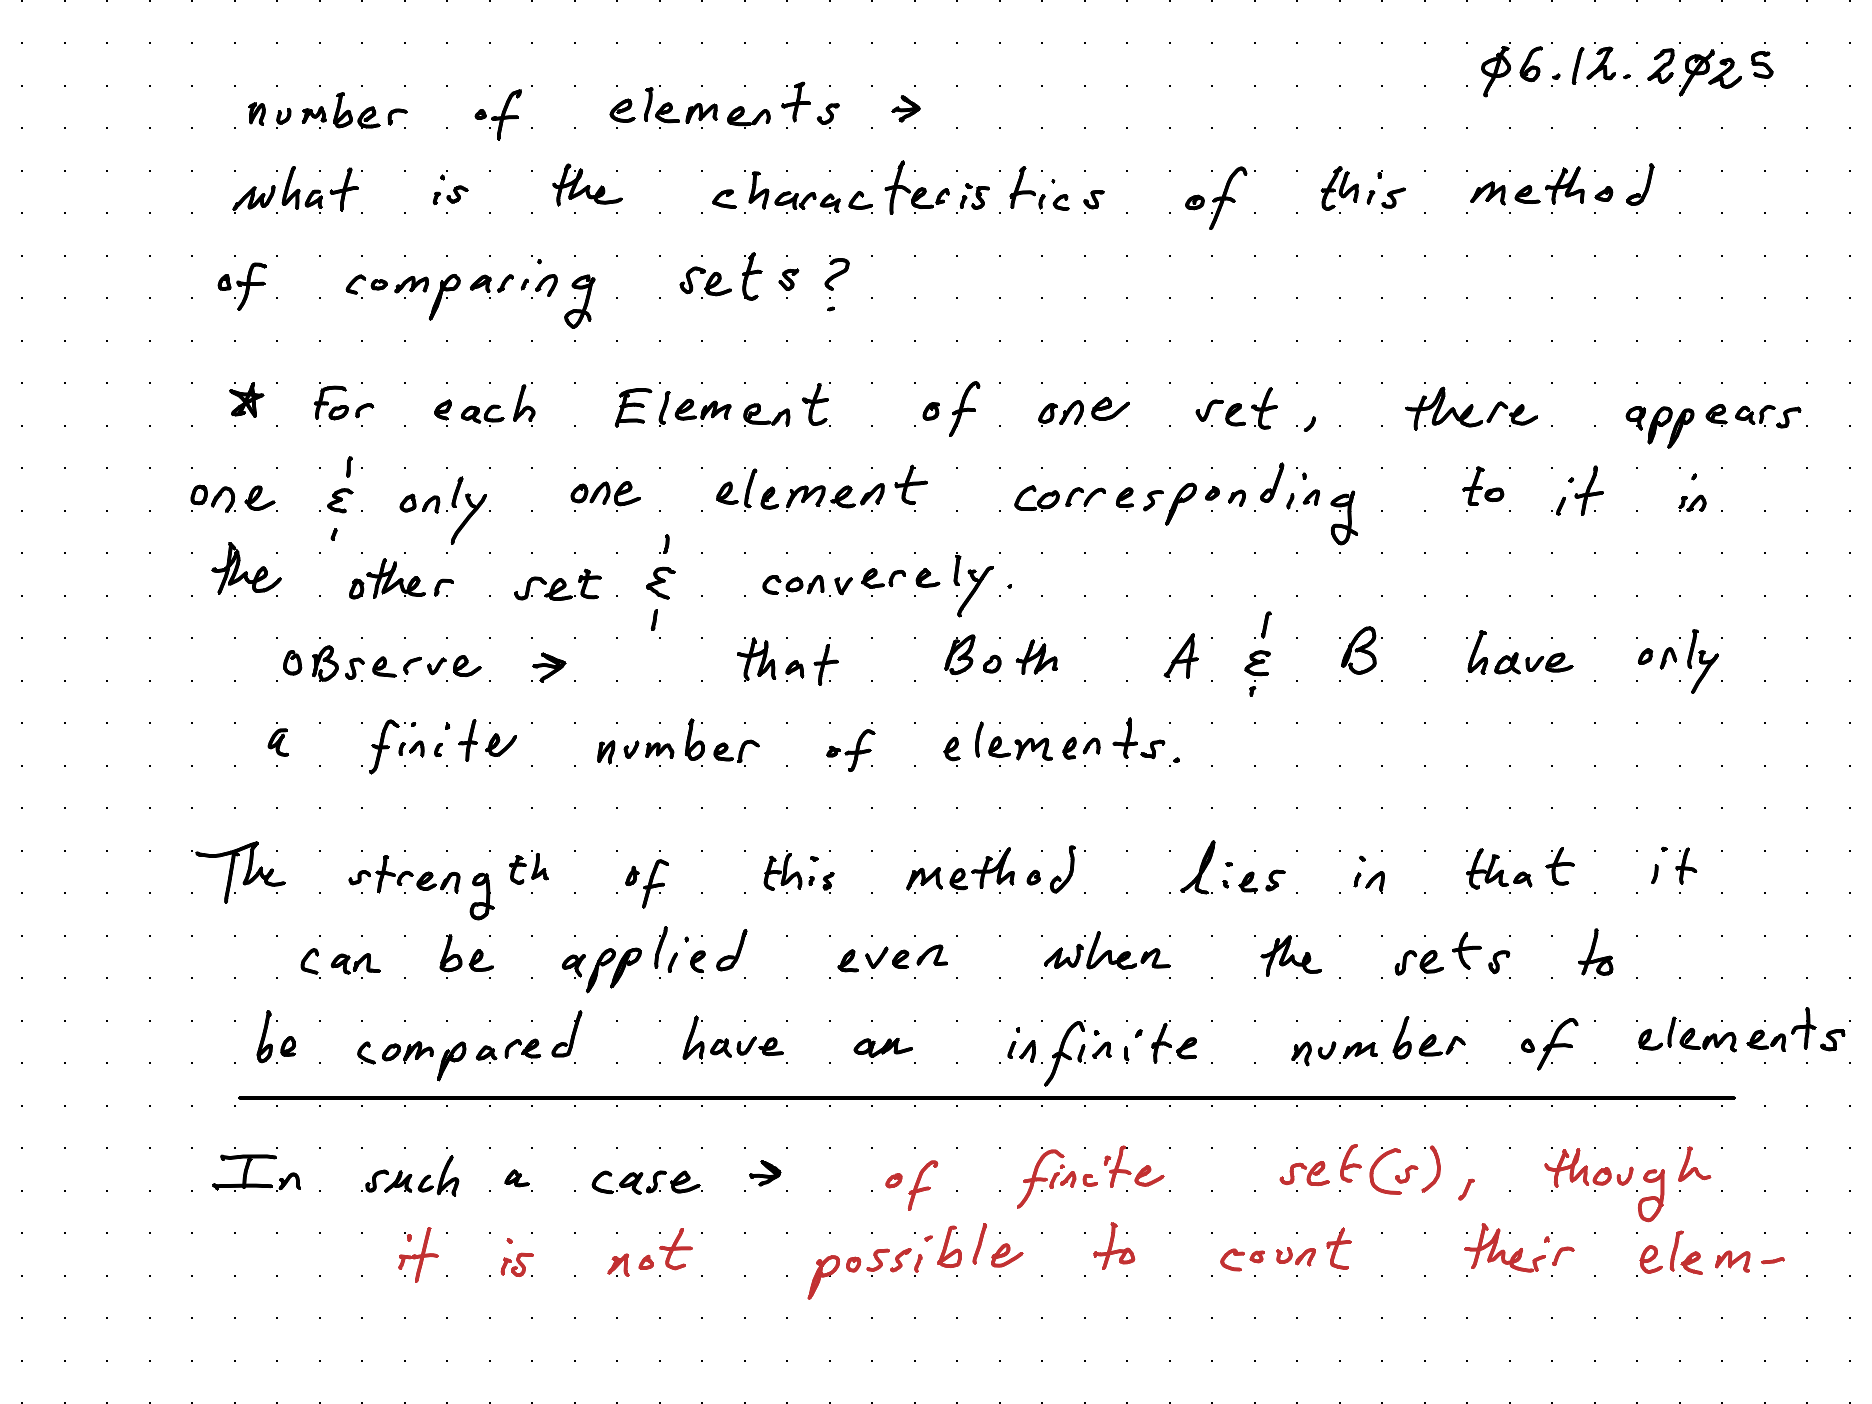 06.12.2025
number of elements →
what is the characteristics of this method
of comparing sets?
* For each Element of one set, there appears
one & only one element corresponding to it in
the other set & converely.
OBserve → that Both A & B have only
a finite number of elements.
The strength of this method lies in that it
can be applied even when the sets to
be compared have an infinite number of elements
In such a case → of finite set(s), though
it is not possible to count their elem-